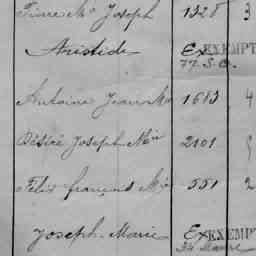 Pierre Mie Joseph 1328 3
Aristide Ex EXEMPT
77. S.O.
Antoine Jean Mie 1613 4
Désiré Joseph Mie 2101
Félix françois Mie 551 2
Joseph Marie Ex EXEMPT